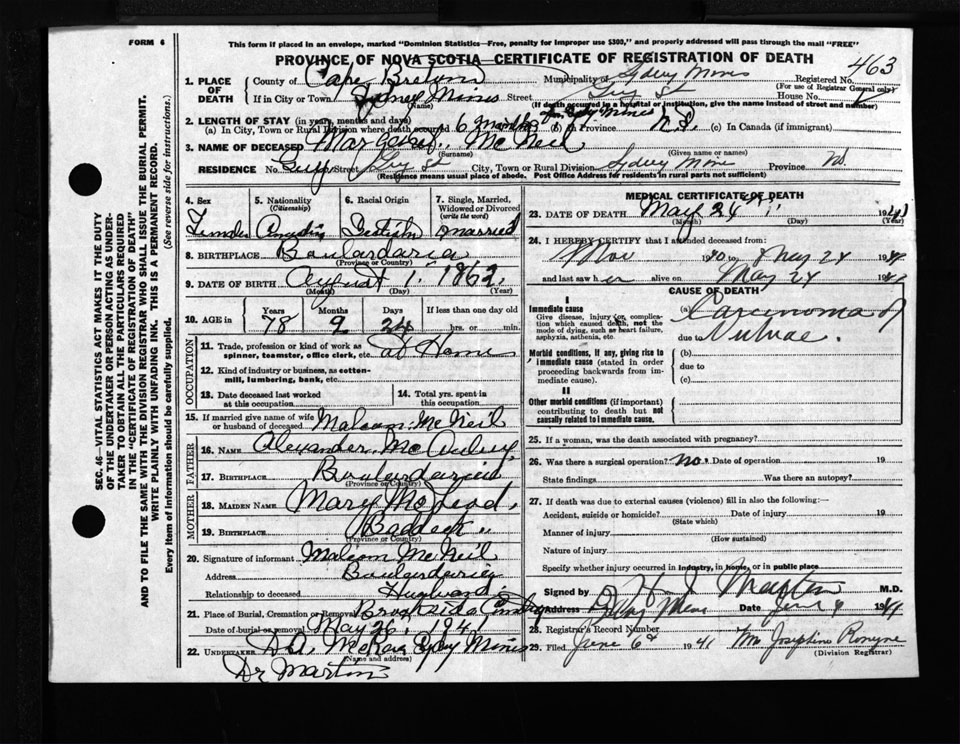 FORM 6
This form if placed in an envelope, marked "Dominion Statistics—Free, penalty for improper use $300," and properly addressed will pass through the mail "FREE"
PROVINCE OF NOVA SCOTIA CERTIFICATE OF REGISTRATION OF DEATH
463
1. PLACE OF DEATH
County of Cape Breton
Municipality of Sydney Mines
Registered No.
(For use of Registrar General only)
If in City or Town Sydney Mines Street
House No.
(Name)
(If death occurred in a hospital or institution, give the name instead of street and number)
2. LENGTH OF STAY (in years, months and days)
(a) In City, Town or Rural Division where death occurred 6 months (b) In Province N.S. (c) In Canada (if immigrant)
3. NAME OF DECEASED Margaret McNeil
(Surname) (Given name or names)
RESIDENCE No. Street St City, Town or Rural Division Sydney Mine Province NS.
(Residence means usual place of abode. Post Office Address for residents in rural parts not sufficient)
4. Sex
5. Nationality (Citizenship)
6. Racial Origin
7. Single, Married, Widowed or Divorced (write the word)
Married
8. BIRTHPLACE Boulardaria
(Province or Country)
9. DATE OF BIRTH August 1 1862
(Month) (Day) (Year)
10. AGE in
Years Months Days If less than one day old
78 9 24 hrs. or min.
OCCUPATION
11. Trade, profession or kind of work as spinner, teamster, office clerk, etc. at Home
12. Kind of industry or business, as cotton-mill, lumbering, bank, etc.
13. Date deceased last worked at this occupation
14. Total yrs. spent in this occupation
15. If married give name of wife or husband of deceased Malcom McNeil
FATHER
16. NAME Alexander
17. BIRTHPLACE Boulardarie
(Province or Country)
MOTHER
18. MAIDEN NAME Mary McLeod
19. BIRTHPLACE Baddeck
(Province or Country)
20. Signature of informant Malcom McNeil
Address Boulardarie
Relationship to deceased Husband
21. Place of Burial, Cremation or Removal
Date of burial or removal May 26, 1941
22. UNDERTAKER D A. Mines
(Name and address)
Dr Marton
MEDICAL CERTIFICATE OF DEATH
23. DATE OF DEATH May 24 1941
(Month) (Day)
24. I HEREBY CERTIFY that I attended deceased from:
Nov 1940 to May 24 1941
and last saw her alive on May 24 1941
CAUSE OF DEATH
I
Immediate cause
Give disease, injury or complication which caused death, not the mode of dying, such as heart failure, asphyxia, asthenia, etc.
(a) Carcinoma of
due to Vulvae.
Morbid conditions, if any, giving rise to immediate cause (stated in order proceeding backwards from immediate cause).
(b)
due to
(c)
II
Other morbid conditions (if important) contributing to death but not causally related to immediate cause.
25. If a woman, was the death associated with pregnancy?
26. Was there a surgical operation? no. Date of operation 19
State findings Was there an autopsy?
27. If death was due to external causes (violence) fill in also the following:—
Accident, suicide or homicide? Date of injury 19
(State which)
Manner of injury
(How sustained)
Nature of injury
Specify whether injury occurred in Industry, in home, or in public place
Signed by M.D.
Address Mines Date June 1941
28. Registrar's Record Number
29. Filed June 6 1941 Josephine
(Division Registrar)
SEC. 46—VITAL STATISTICS ACT MAKES IT THE DUTY
OF THE UNDERTAKER OR PERSON ACTING AS UNDER-
TAKER TO OBTAIN ALL THE PARTICULARS REQUIRED
IN THE "CERTIFICATE OF REGISTRATION OF DEATH"
AND TO FILE THE SAME WITH THE DIVISION REGISTRAR WHO SHALL ISSUE THE BURIAL PERMIT.
WRITE PLAINLY WITH UNFADING INK. THIS IS A PERMANENT RECORD.
Every item of information should be carefully supplied. (See reverse side for instructions.)